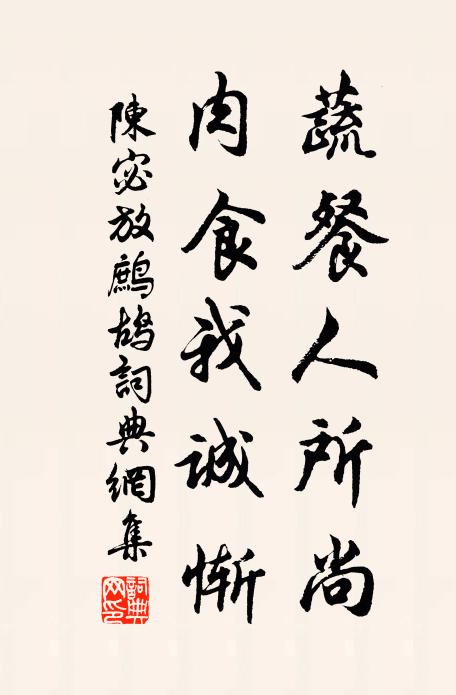 蔬餐人所尚
肉食我誠慚
陳宓放鷓鴣詞典網集
詞典網印